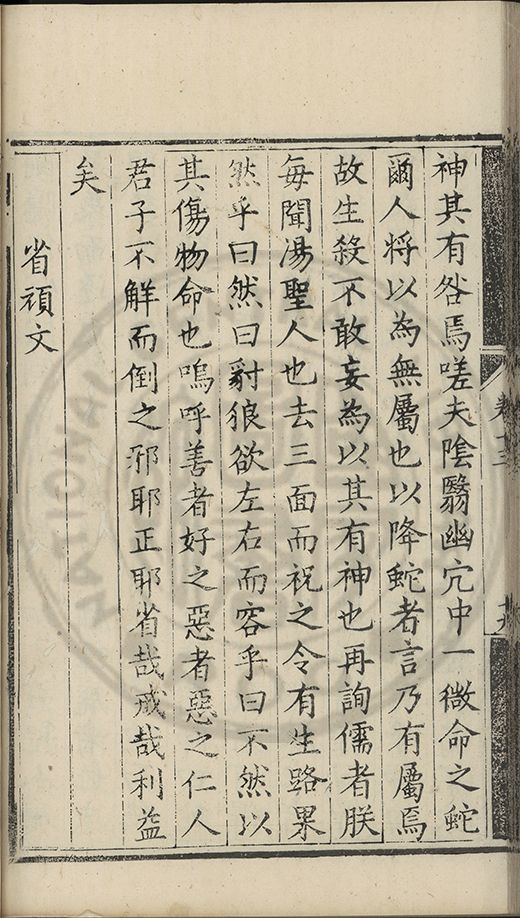 神其有咎焉嗟夫陰翳幽宂中一微命之蛇
爾人將以為無屬也以降蛇者言乃有屬焉
故生殺不敢妄為以其有神也再詢儒者朕
每聞湯聖人也去三面而祝之令有生路果
然乎曰然曰豺狼欲左右而容乎曰不然以
其傷物命也嗚呼善者好之惡者惡之仁人
君子不解而倒之邪耶正耶省哉戒哉利益
矣
省頑文
卷十三